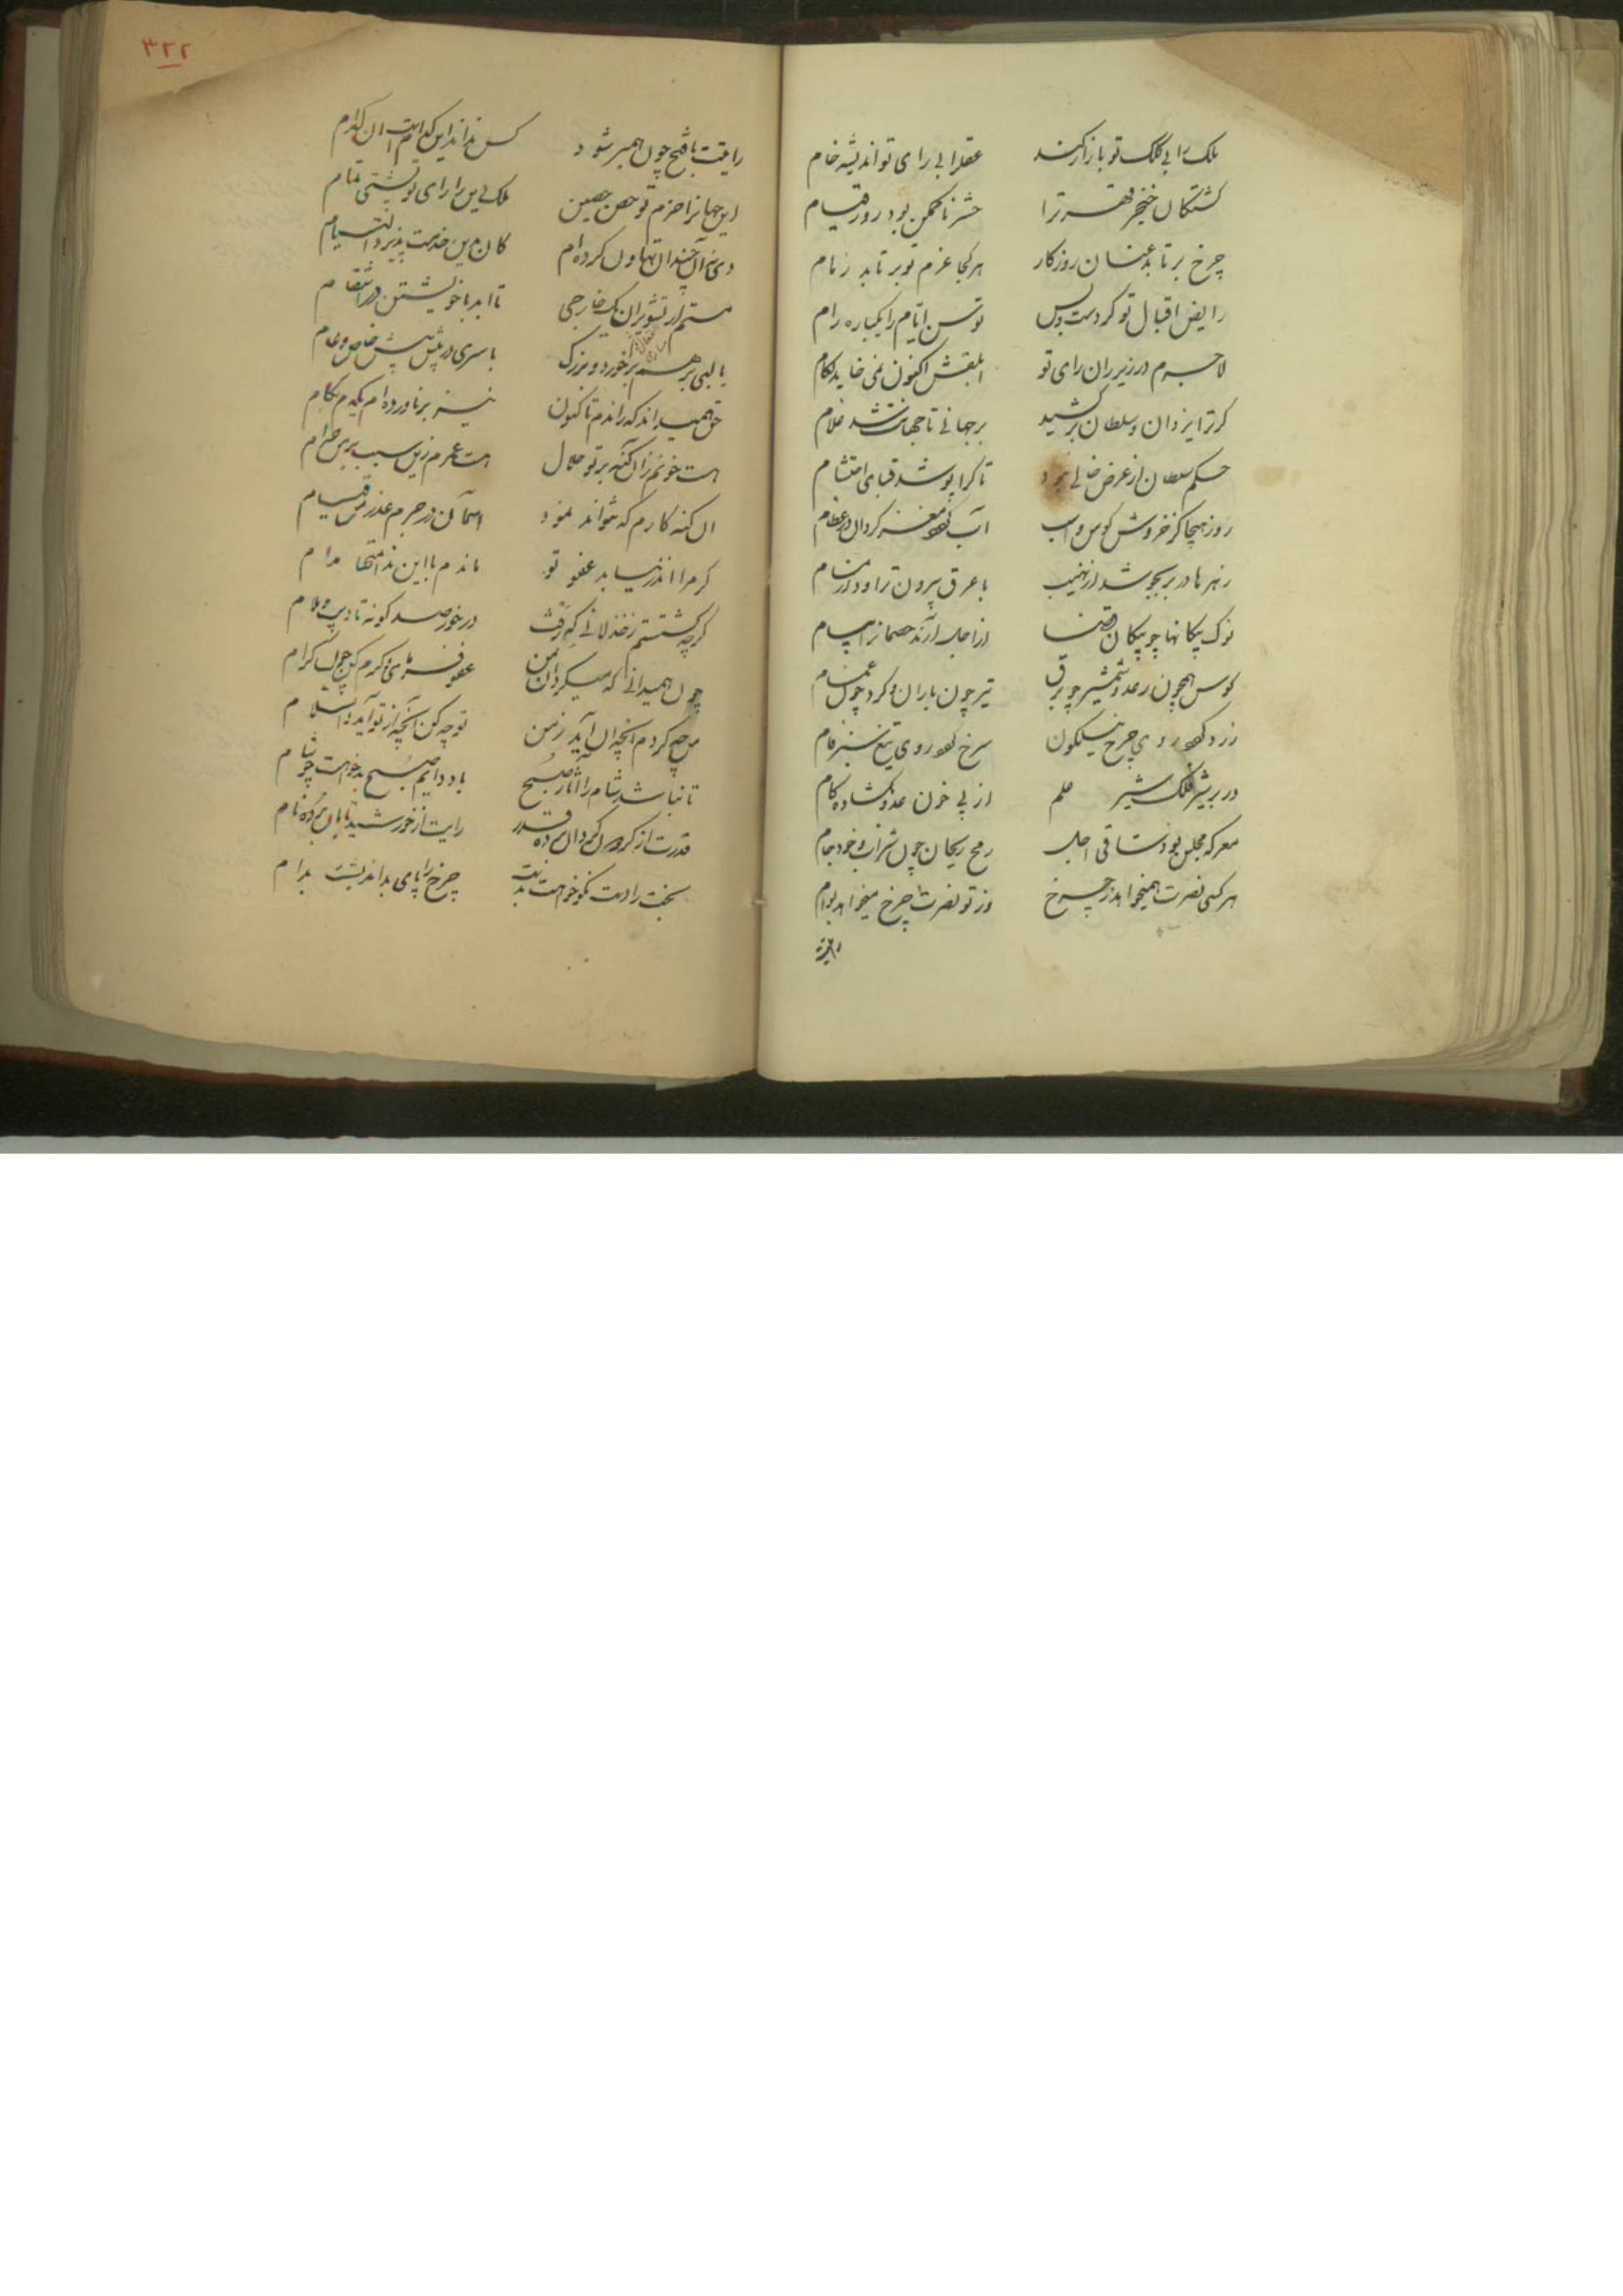 ملک را بی کلک تو بازار کند عقل را بی رای تو اندیشه خام
کشتکان خنجر قهر ترا حشر ناممکن بود روز قیام
چرخ برتابد عنان روزکار هر کجا عزم تو برتابد زمام
رایض اقبال تو کردست و بس توسن ایام را یکباره رام
لاجرم در زیر ران رای تو ابلقش اکنون نمی خاید لکام
کر ترا یزدان و سلطان برکشید بر جهانی تا جهانت شد غلام
حکم سلطان از غرض خالی بود تا کرا پوشد قبای احتشام
روز هیجا کز خروش کوس و اسب آب کردد مغز کردان در عظام
زهرها در بر بجوشد از نهیب با عرق بیرون تراود از مسام
نوک پیکانها چو پیکان قضا از اجل آرند خصمان را پیام
کوس همچون رعد و شمشیر چو برق تیر چون باران و کرد چون غمام
زرد کردد روی چرخ نیلکون سرخ کردد روی تیغ سبز فام
در بر شیر فلک شیر علم از پی خون عدو بکشاده کام
معرکه مجلس بود ساقی اجل رمح ریحان خون شراب و خود جام
هر کسی نصرت همیخواهد ز چرخ وز تو نصرت چرخ میخواهد بوام
رایت
۳۲۲
رایتت با فتح چون همبر شود کس نداند این کدامست آن کدام
ای جهانرا حزم تو حصن حصین ملک دین را رای تو پشتی تمام
چندان تهاون کرده ام کان خدمت پذیرد التیام
تا ابد با خویشتن در انتقام
با لبی پر هم بر خورد و بزرک با سری در پیش پیش خاص و عام
حق همیداند که راندم تا کنون نیز برناورده ام یکدم بکام
هست خونم زان کنه بر تو حلال هست عمرم زین سبب بر من حرام
آن کنه کارم که نتواند نمود آسمان در جرم عذر من قیام
کر مرا اندر نیابد عفو تو ماندم با این ندامتها مدام
کرچه کشتستم ز خذلانی که رفت در خور صد کونه تادیب و ملام
چون همیدانی که میکردان عفو فرمای و کرم کن چون کرام
من چه کردم آنچه آن آید ز من تو چه کن آنچه از تو آید والسلام
تا نباشد شام را آثار صبح باد دایم صبح بدخواهت چو شام
قدرت از کردون کردان برده قدر رایت از خورشید تابان برده نام
بخت را دست نکوخواهت بدست چرخ را پای بداندیشت بدام